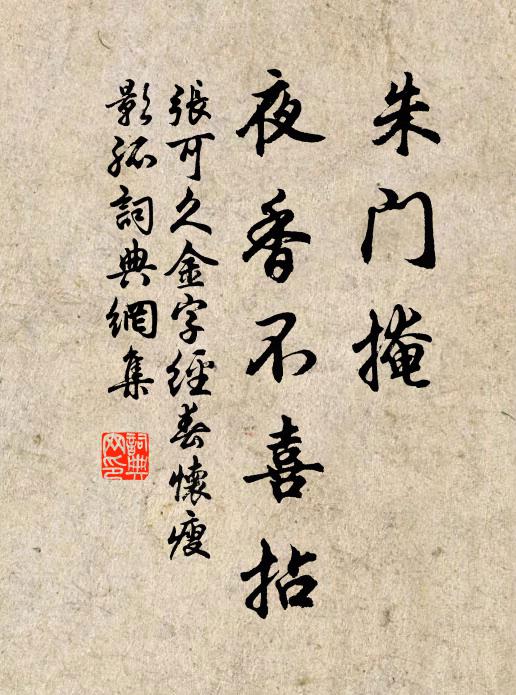 朱门掩
夜香不喜拈
張可久金字經春懷瘦
影孤詞典網集
詞典网印